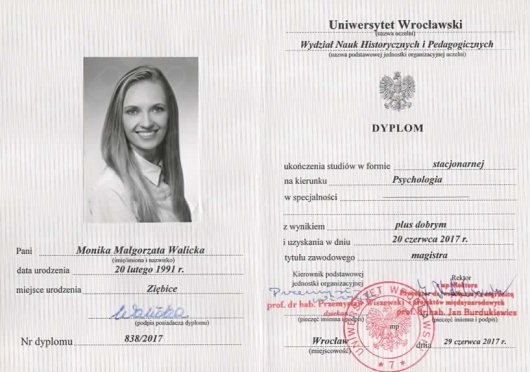 Uniwersytet Wrocławski
(nazwa uczelni)
Wydział Nauk Historycznych i Pedagogicznych
(nazwa podstawowej jednostki organizacyjnej uczelni)
DYPLOM
ukończenia studiów w formie stacjonarnej
na kierunku Psychologia
w specjalności
z wynikiem plus dobrym
i uzyskania w dniu 20 czerwca 2017 r.
tytułu zawodowego magistra
Pani Monika Małgorzata Walicka
(imię/imiona i nazwisko)
data urodzenia 20 lutego 1991 r.
miejsce urodzenia Ziębice
Walicka
(podpis posiadacza dyplomu)
Nr dyplomu 838/2017
Kierownik podstawowej
jednostki organizacyjnej
Rektor
prof. dr hab. Przemysław Wiszewski
prof. dr hab. Jan Burdukiewicz
(pieczęć imienna i podpis)
(pieczęć imienna i podpis)
mp
Wrocław dnia 29 czerwca 2017 r.
(miejscowość)
UNIWERSYTET WROCŁAWSKI
* 7 *